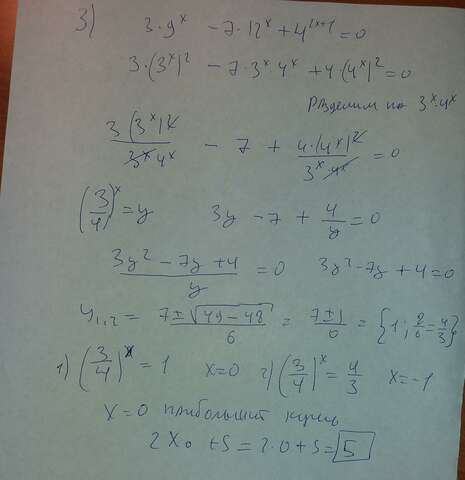 3) 3·9ˣ - 7·12ˣ + 4²ˣ⁺¹ = 0
3·(3ˣ)² - 7·3ˣ·4ˣ + 4·(4ˣ)² = 0
Разделим на 3ˣ·4ˣ
3(3ˣ)²/(3ˣ·4ˣ) - 7 + 4·(4ˣ)²/(3ˣ·4ˣ) = 0
(3/4)ˣ = y 3y - 7 + 4/y = 0
(3y² - 7y + 4)/y = 0 3y² - 7y + 4 = 0
y₁,₂ = (7±√(49-48))/6 = (7±1)/6 = {1; 8/6 = 4/3}
1) (3/4)ˣ = 1 x=0 2) (3/4)ˣ = 4/3 x=-1
x=0 наибольший корень
2x₀ + 5 = 2·0 + 5 = 5